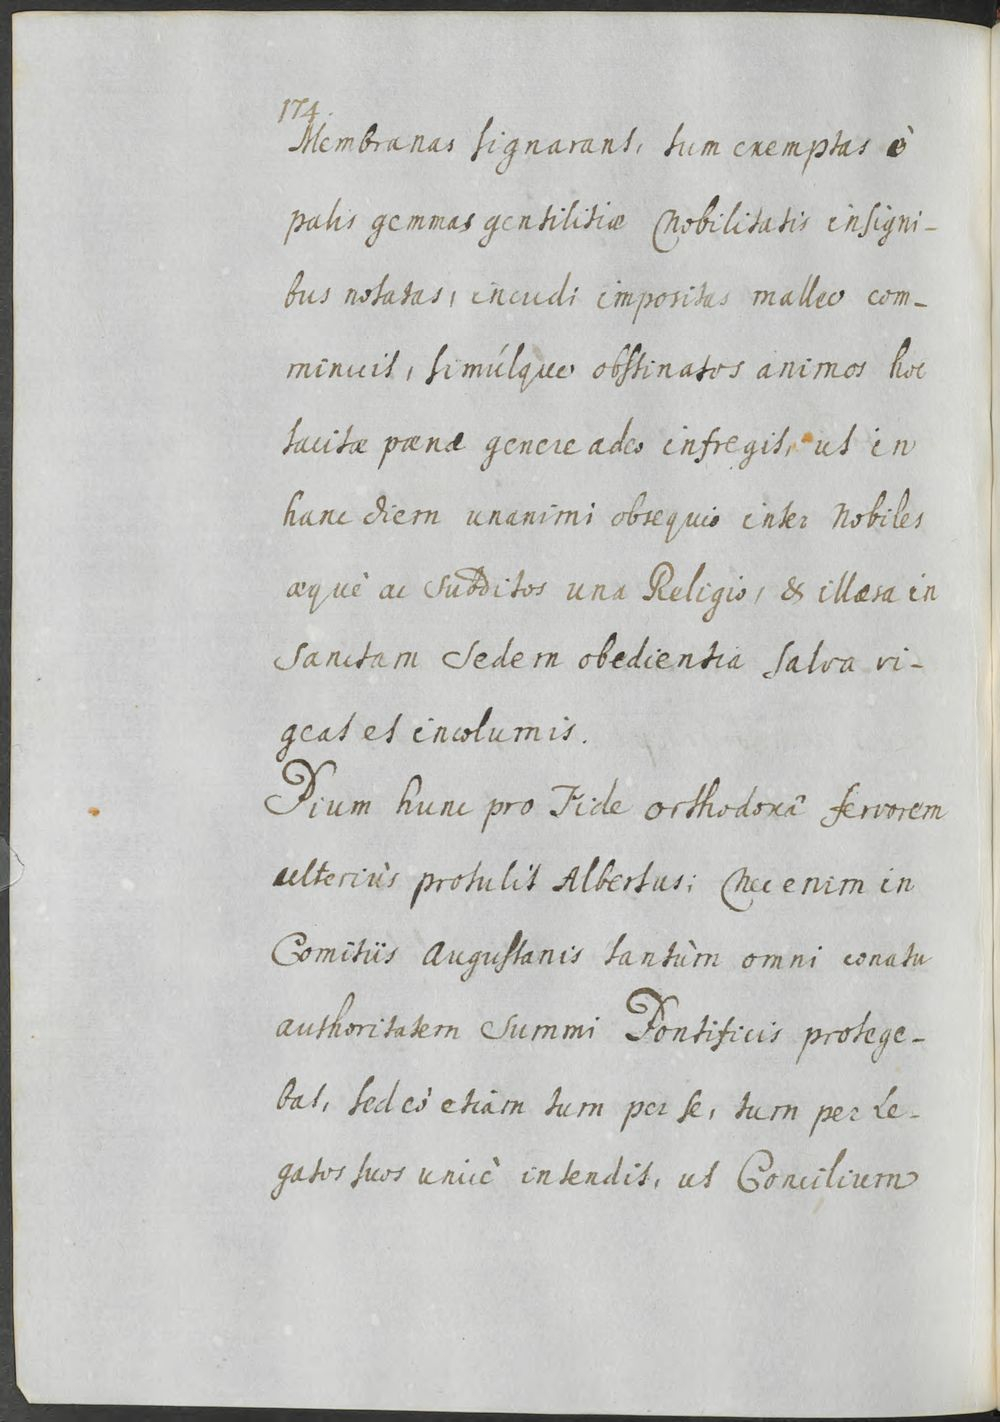 174.
Membranas signarant, tum exemptas è
palis gemmas gentilitiæ Nobilitatis insigni-
bus notatas, incudi impositas malleo com-
minuit, simúlque obstinatos animos hoc
tacitæ pœnæ genere adeo infregit, ut in
hanc diem unanimi obsequio inter Nobiles
æquè ac subditos una Religio, & illæsa in
Sanctam Sedem obedientia salva vi-
geat et incolumis.
Pium hunc pro Fide orthodoxâ fervorem
ulteriùs protulit Albertus; Nec enim in
Comitiis Augustanis tantùm omni conatu
authoritatem Summi Pontificis protege-
bat, sed eò etiam tum per se, tum per Le-
gatos suos unicè intendit, ut Concilium